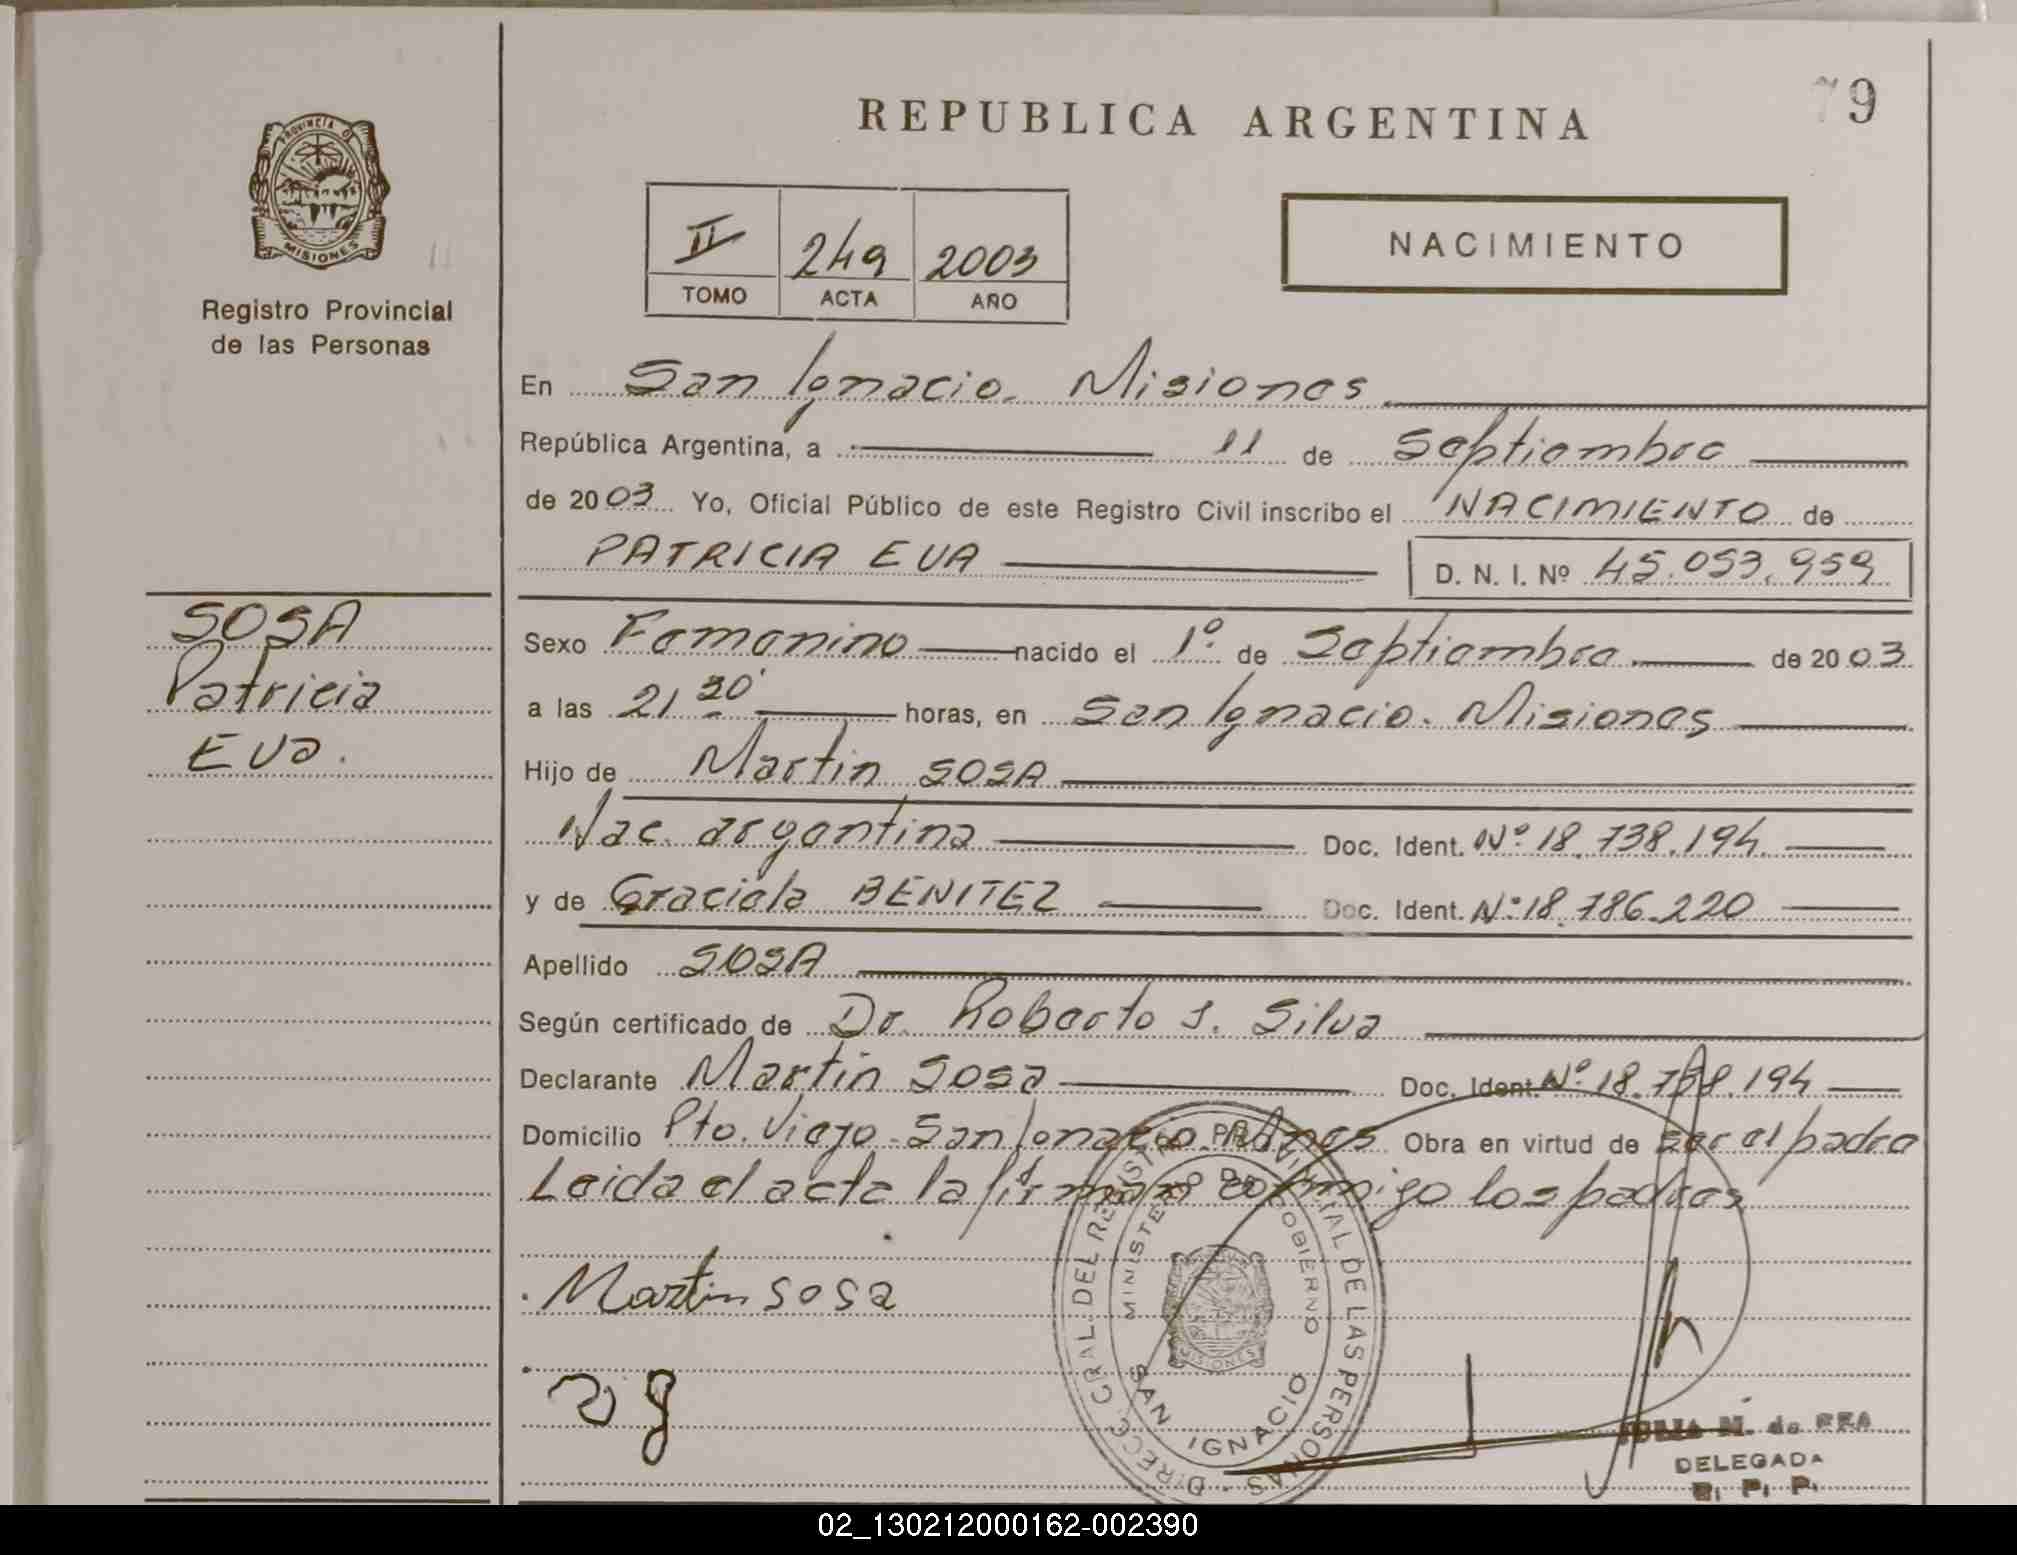 79
REPUBLICA ARGENTINA
PROVINCIA DE
MISIONES
Registro Provincial
de las Personas
II 249 2003
TOMO ACTA AÑO
NACIMIENTO
En San Ignacio. Misiones
República Argentina, a 11 de Septiembre
de 2003 Yo, Oficial Público de este Registro Civil inscribo el NACIMIENTO de
PATRICIA EVA D. N. I. Nº 45.053.959
SOSA
Patricia
Eva.
Sexo Femenino nacido el 1º de Septiembre de 2003
a las 21 20' horas, en San Ignacio. Misiones
Hijo de Martin SOSA
Nac. argentina Doc. Ident. Nº 18.738.194
y de Graciela BENITEZ Doc. Ident. Nº 18.786.220
Apellido SOSA
Según certificado de Dr. Roberto J. Silva
Declarante Martin Sosa Doc. Ident. Nº 18.738.194
Domicilio Pto. Viejo - San Ignacio. Mnes Obra en virtud de ser el padre
Leida el acta la firman conmigo los padres
Martin sosa
DIRECC GRAL. DEL REGISTRO PROVINCIAL DE LAS PERSONAS
MINISTERIO DE GOBIERNO
MISIONES
SAN IGNACIO
M. de REA
DELEGADA
R. P. P.
02_130212000162-002390